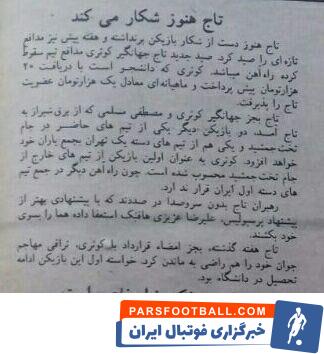 تاج هنوز شکار می کند
تاج هنوز دست از شکار بازیکن برنداشته و هفته پیش نیز مدافع
تازه‌ای را صید کرد. صید جدید تاج جهانگیر کوثری مدافع تیم سقوط
کرده راه‌آهن میباشد. کوثری که دانشجو است با دریافت ۲۰
هزارتومان پیش پرداخت و ماهیانه‌ای معادل یک هزارتومان عضویت
تاج را پذیرفت.
تاج بجز جهانگیر کوثری و مصطفی مسلمی که از برق شیراز به
تاج آمد، دو بازیکن دیگر یکی از تیم های حاضر در جام
تخت‌جمشید و یکی هم از تیم های دسته یک تهران بجمع یاران خود
خواهد افزود. کوثری به عنوان اولین بازیکن از تیم های خارج از
جام تخت‌جمشید محسوب شده است. چون راه‌آهن دیگر در جمع تیم
های دسته اول ایران قرار ندارد.
رهبران تاج بدون سروصدا در صددند که با پیشنهادی بهتر از
پیشنهاد پرسپولیس، علیرضا عزیزی هافبک استعفا داده هما را بسوی
خود بکشند.
تاج هفته گذشته، بجز امضاء قرارداد با کوثری، تراقی مهاجم
جوان خود را هم راضی به ماندن کرد. خواسته اول این بازیکن ادامه
تحصیل در دانشگاه بود.
PARSFOOTBALL.COM
خبرگزاری فوتبال ایران